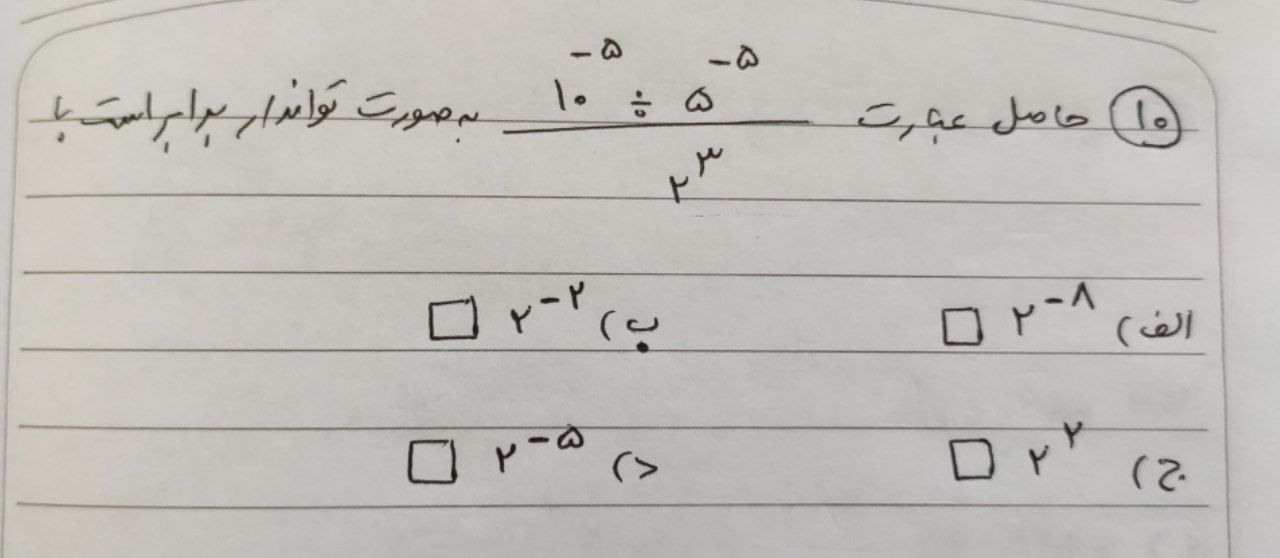 ۱۰ حاصل عبارت (۱۰^-۵ ÷ ۵^-۵)/(۲^۳) به صورت تواندار برابر است با
الف) ۲^-۸ ب) ۲^-۲
ج) ۲^۲ د) ۲^-۵